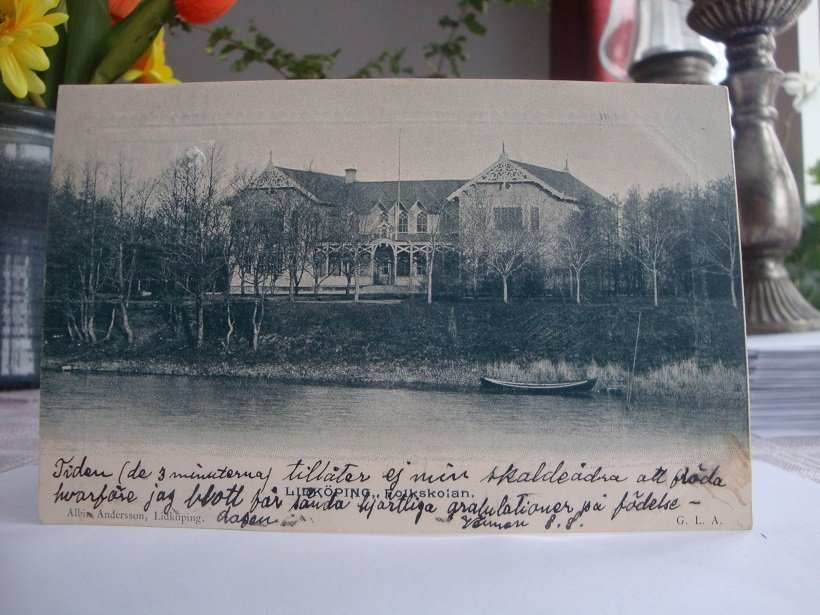 Tiden (de 3 minuterna) tillåter ej min skaldeådra att flöda
hvarföre jag blott får sända hjärtliga gratulationer på födelse-
LIDKÖPING. Folkskolan.
dagen Vännen S. S.
Albin Andersson, Lidköping.
G. L. A.